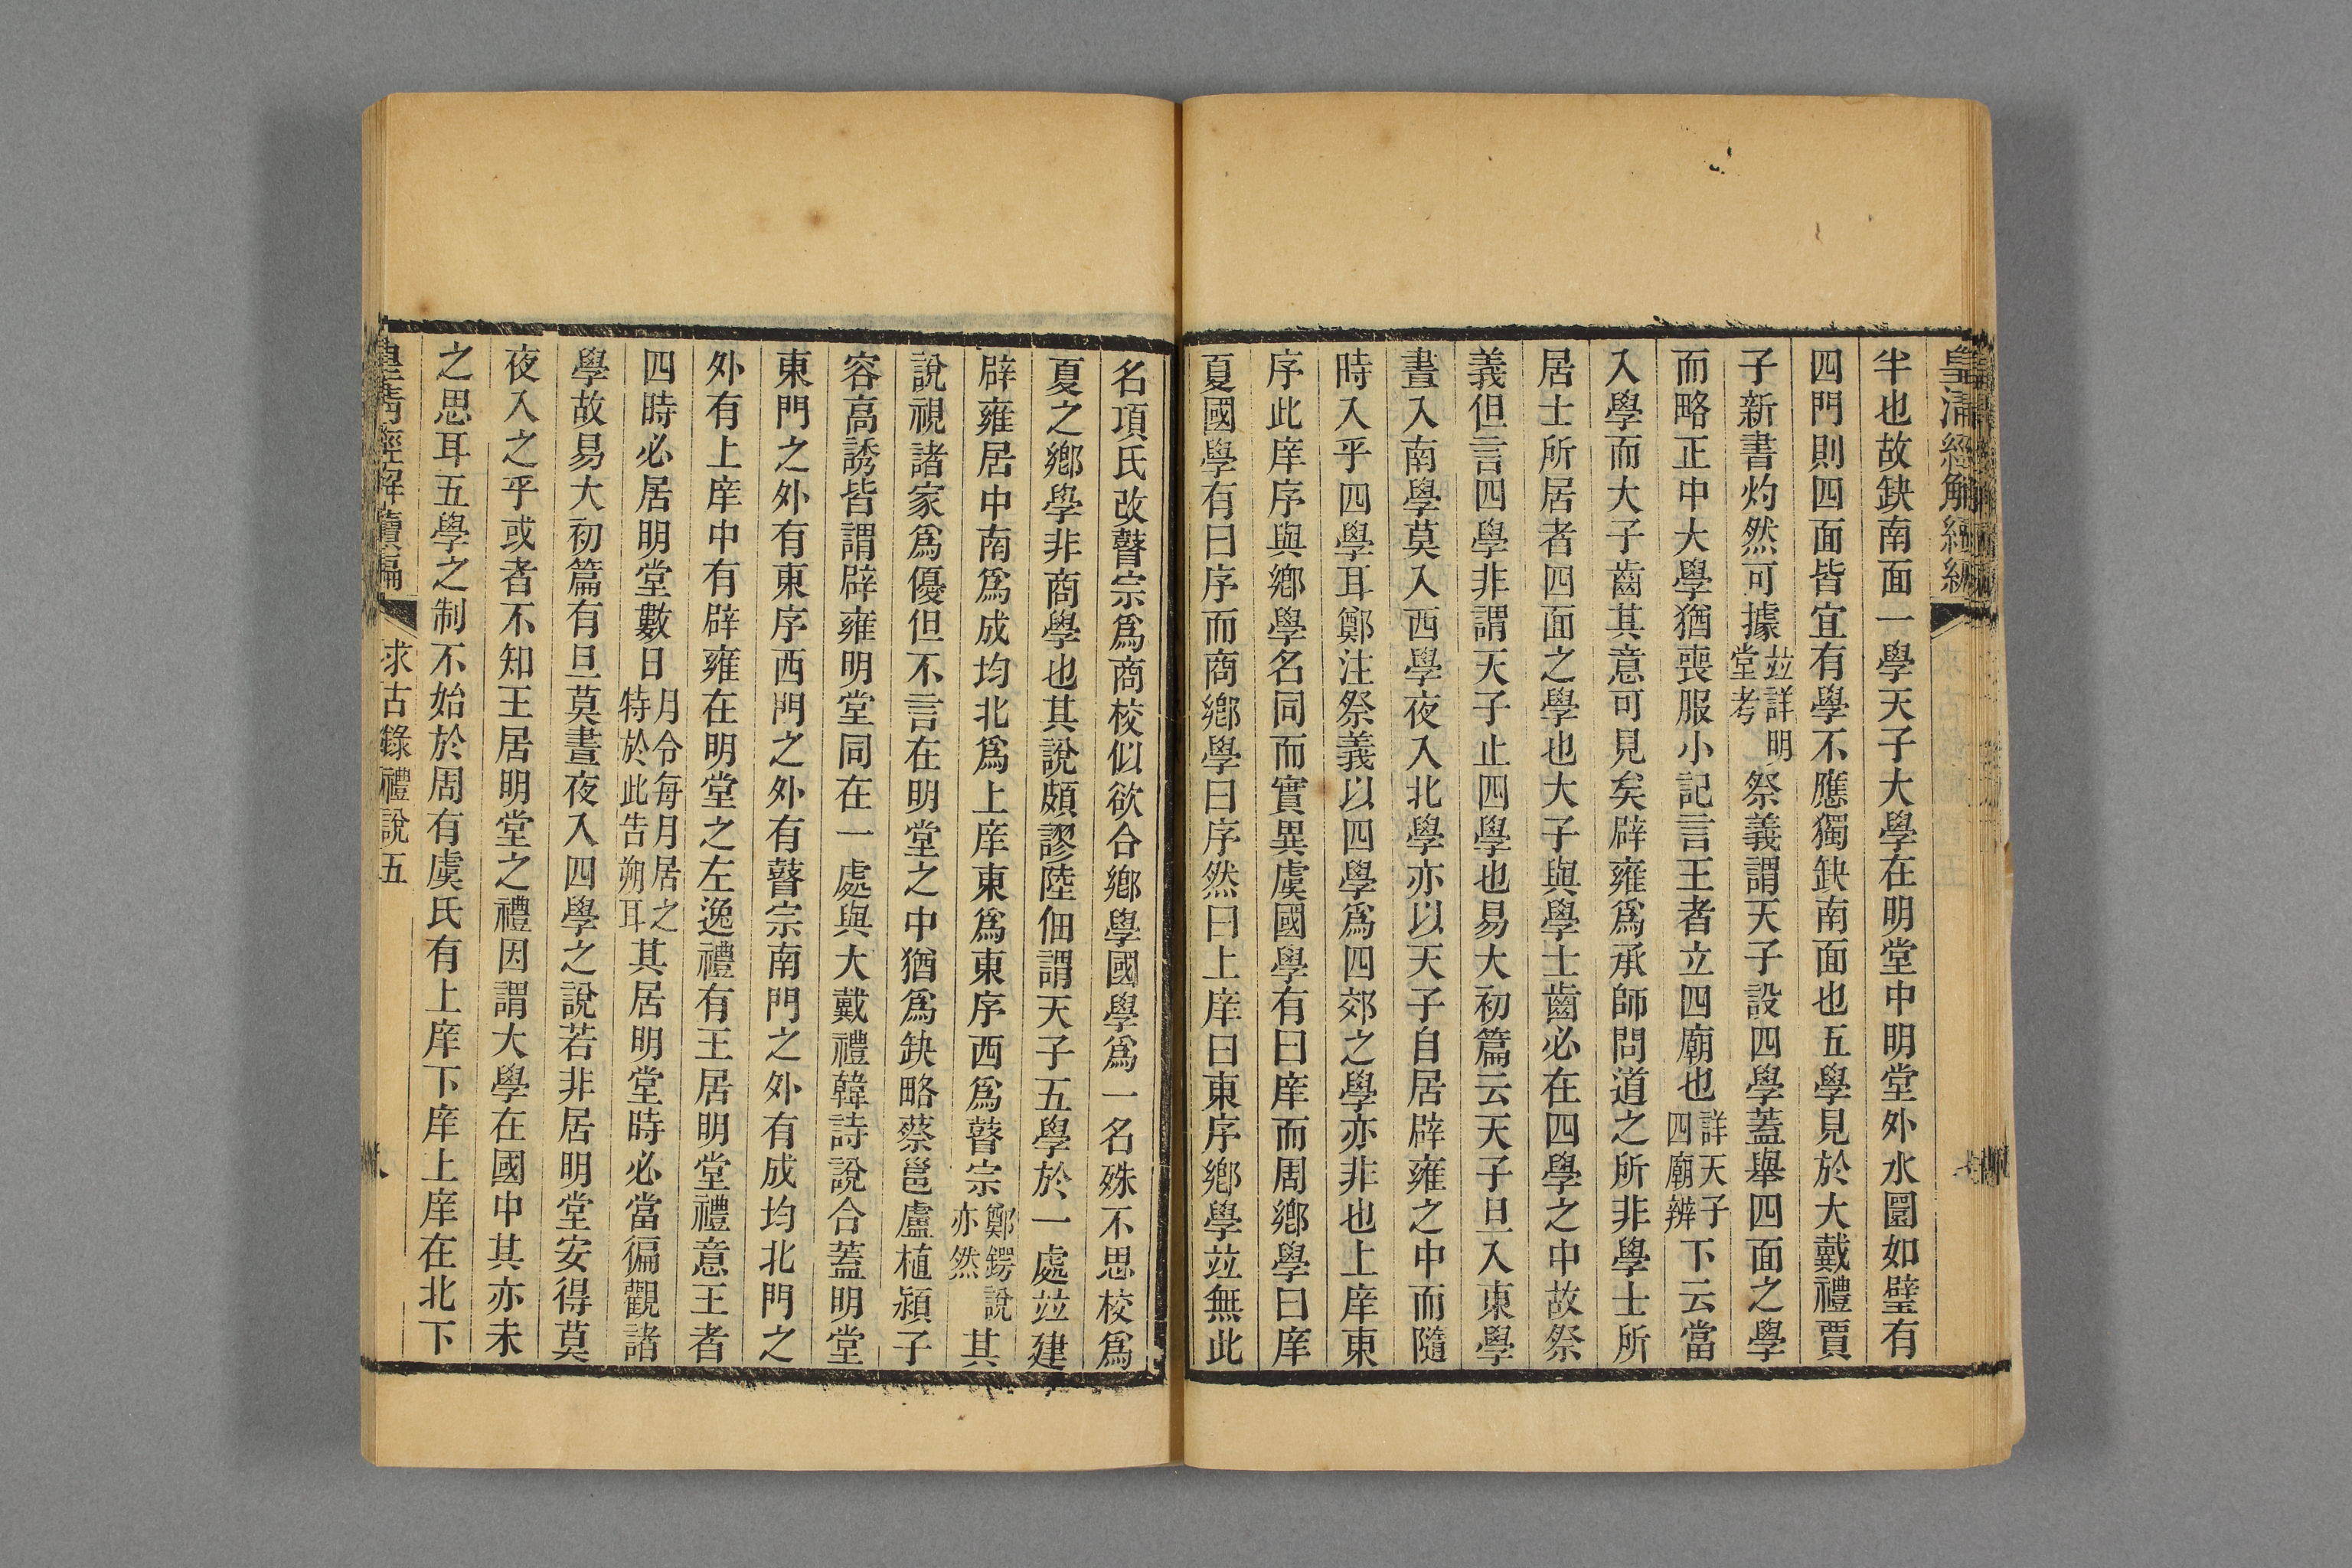 皇清經解續編
半也故缺南面一學天子大學在明堂中明堂外水圜如璧有
四門則四面皆宜有學不應獨缺南面也五學見於大戴禮賈
子新書灼然可據竝詳明堂考祭義謂天子設四學蓋舉四面之學
而略正中大學猶喪服小記言王者立四廟也詳天子四廟辨下云當
入學而大子齒其意可見矣辟雍爲承師問道之所非學士所
居士所居者四面之學也大子與學士齒必在四學之中故祭
義但言四學非謂天子止四學也易大初篇云天子旦入東學
晝入南學莫入西學夜入北學亦以天子自居辟雍之中而隨
時入乎四學耳鄭注祭義以四學爲四郊之學亦非也上庠東
序此庠序與鄕學名同而實異虞國學有曰庠而周鄕學曰庠
夏國學有曰序而商鄕學曰序然曰上庠曰東序鄕學竝無此
名項氏改瞽宗爲商校似欲合鄕學國學爲一名殊不思校爲
夏之鄕學非商學也其說頗謬陸佃謂天子五學於一處竝建
辟雍居中南爲成均北爲上庠東爲東序西爲瞽宗鄭鍔說亦然其
說視諸家爲優但不言在明堂之中猶爲缺略蔡邕盧植潁子
容高誘皆謂辟雍明堂同在一處與大戴禮韓詩說合蓋明堂
東門之外有東序西門之外有瞽宗南門之外有成均北門之
外有上庠中有辟雍在明堂之左逸禮有王居明堂禮意王者
四時必居明堂數日月令每月居之特於此告朔耳其居明堂時必當徧觀諸
學故易大初篇有旦莫晝夜入四學之說若非居明堂安得莫
夜入之乎或者不知王居明堂之禮因謂大學在國中其亦未
之思耳五學之制不始於周有虞氏有上庠下庠上庠在北下
皇清經解續編
求古錄禮說五